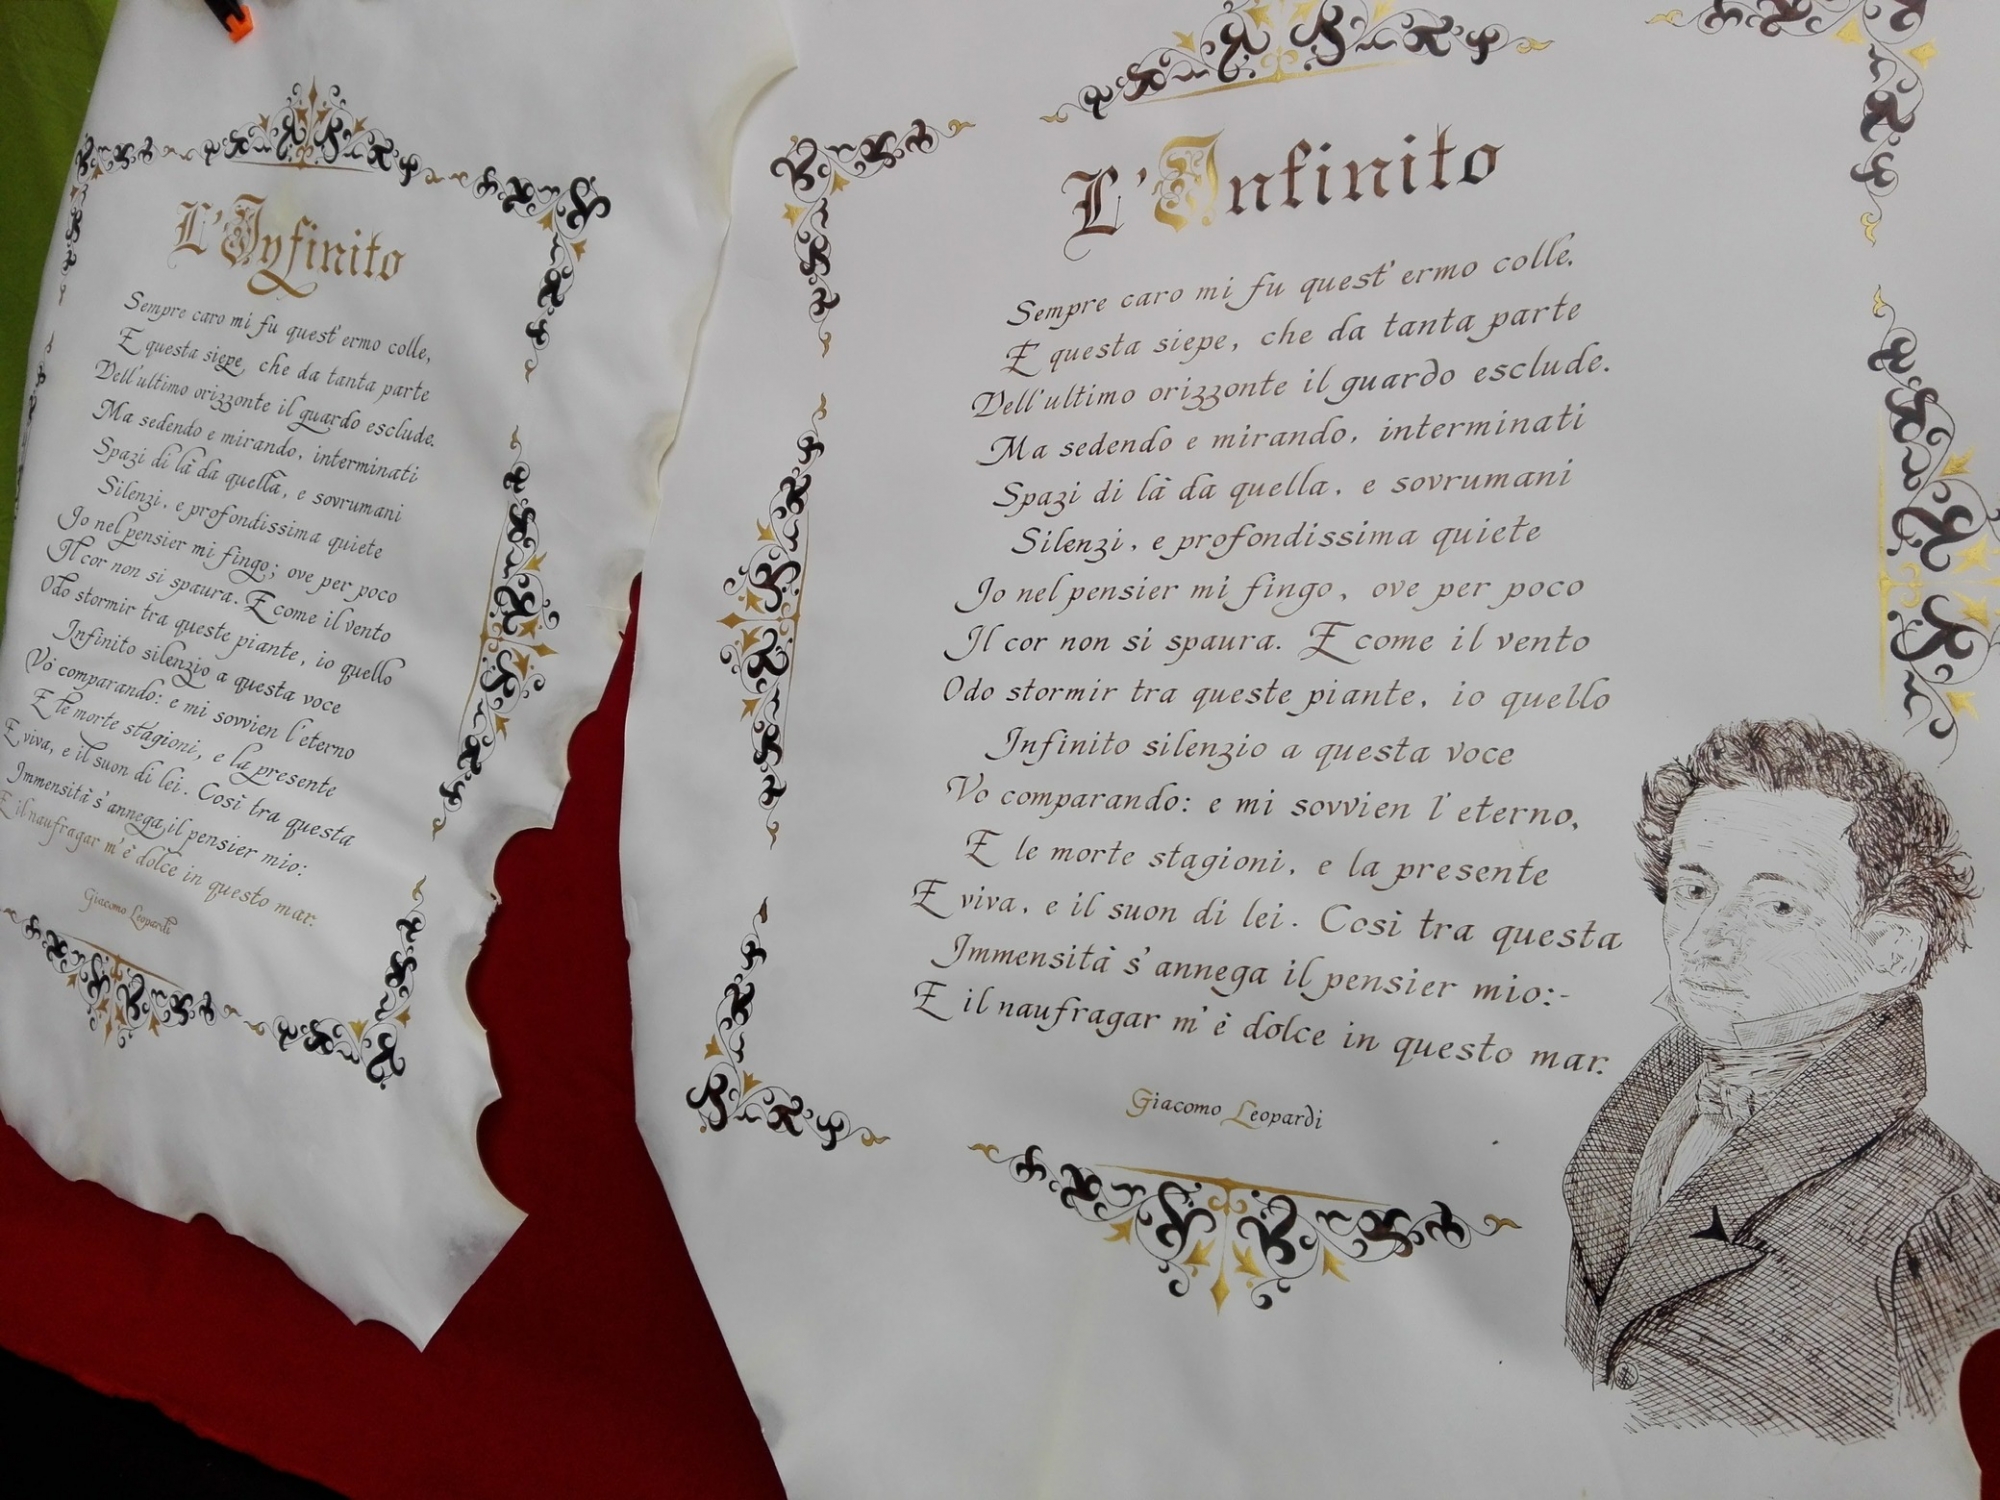 L'Infinito
Sempre caro mi fu quest' ermo colle,
E questa siepe, che da tanta parte
Dell'ultimo orizzonte il guardo esclude.
Ma sedendo e mirando, interminati
Spazi di là da quella, e sovrumani
Silenzi, e profondissima quiete
Jo nel pensier mi fingo; ove per poco
Il cor non si spaura. E come il vento
Odo stormir tra queste piante, io quello
Infinito silenzio a questa voce
Vò comparando: e mi sovvien l'eterno
E le morte stagioni, e la presente
E viva, e il suon di lei. Così tra questa
Immensità s'annega il pensier mio:
E il naufragar m'è dolce in questo mar.
Giacomo Leopardi
L'Infinito
Sempre caro mi fu quest' ermo colle.
E questa siepe, che da tanta parte
Dell'ultimo orizzonte il guardo esclude.
Ma sedendo e mirando, interminati
Spazi di là da quella, e sovrumani
Silenzi, e profondissima quiete
Jo nel pensier mi fingo, ove per poco
Il cor non si spaura. E come il vento
Odo stormir tra queste piante, io quello
Infinito silenzio a questa voce
Vo comparando: e mi sovvien l'eterno,
E le morte stagioni, e la presente
E viva, e il suon di lei. Così tra questa
Immensità s'annega il pensier mio:-
E il naufragar m'è dolce in questo mar.
Giacomo Leopardi